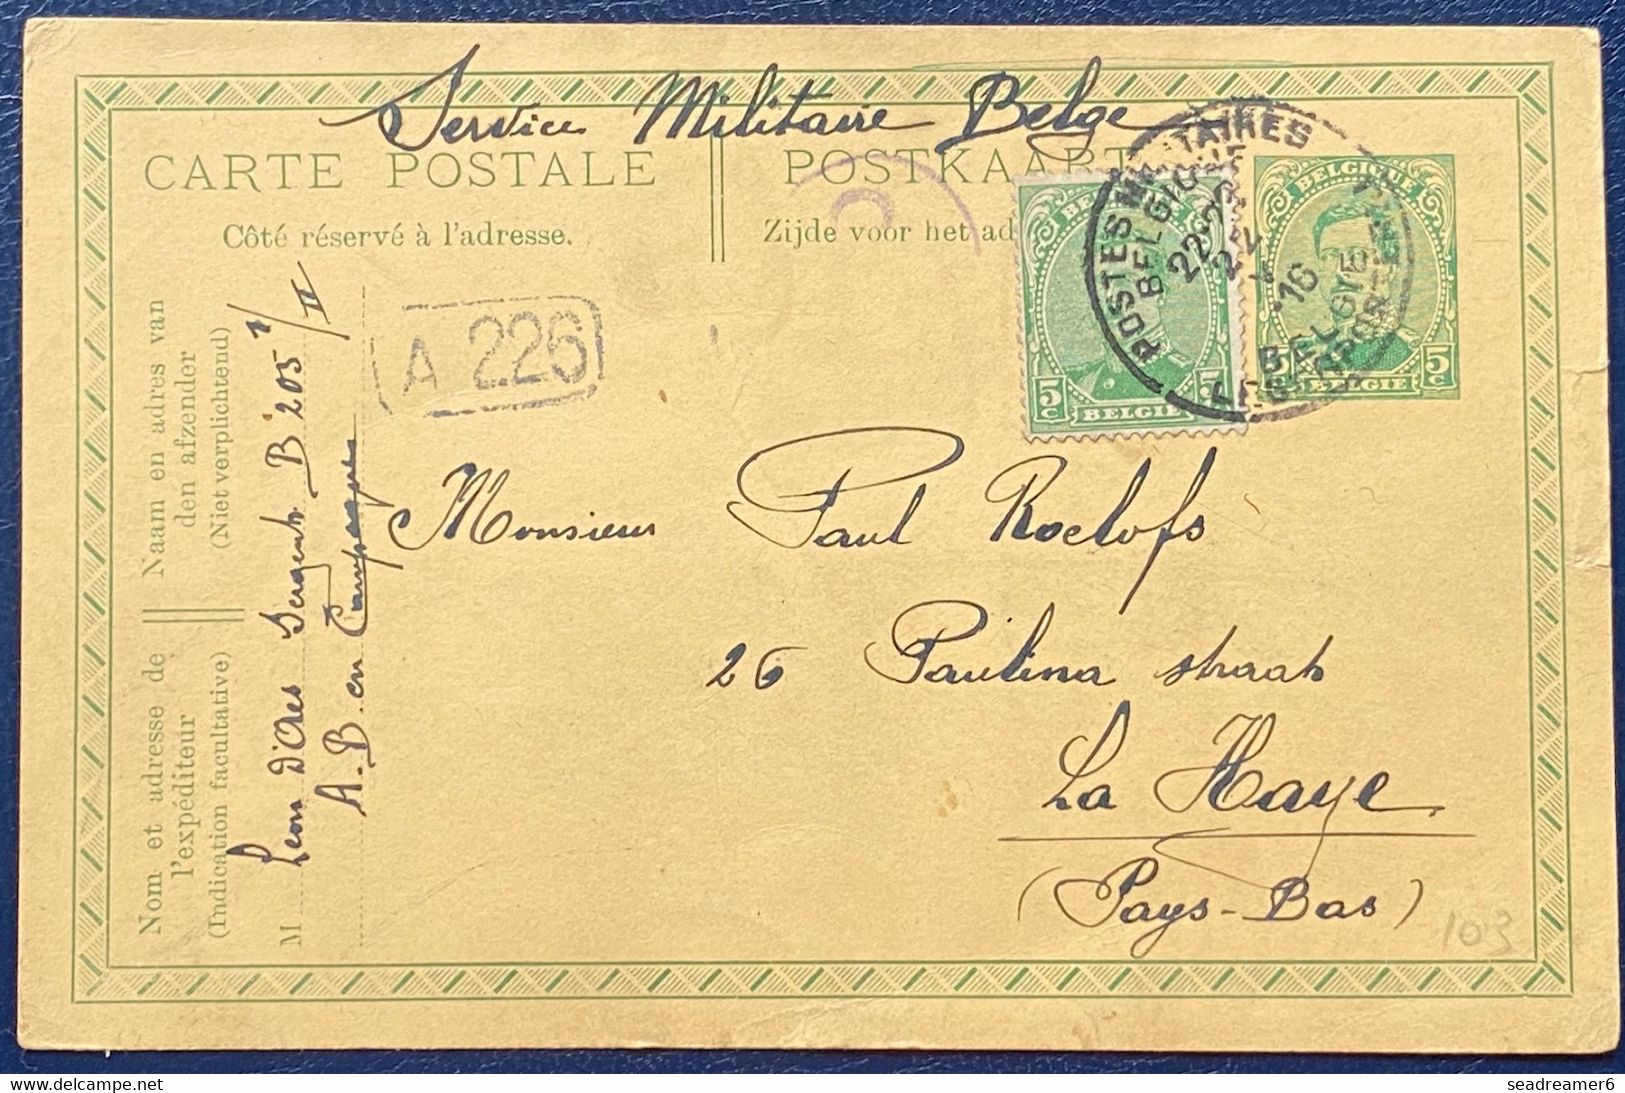 Service Militaire Belge
CARTE POSTALE
POSTKAART
Côté réservé à l'adresse.
Zijde voor het ad
BELGIQUE
5c
BELGIË
5
BELGIQUE
5c
5c
BELGIË
POSTES MILITAIRES
BELGIQUE
22-23
16
BELGIE
LEGERPOSTERIJ
A 226
Monsieur Paul Roelofs
26 Paulina straat
La Haye
(Pays-Bas)
103
Naam en adres van
den afzender
(Niet verplichtend)
Nom et adresse de
l'expéditeur
(Indication facultative)
M
Leon d'Ores Sergent B 205 1/II
A.B. en Campagne
seadreamer6